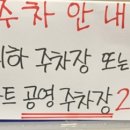 주차안내
지하 주차장 또는
트 공영주차장 2